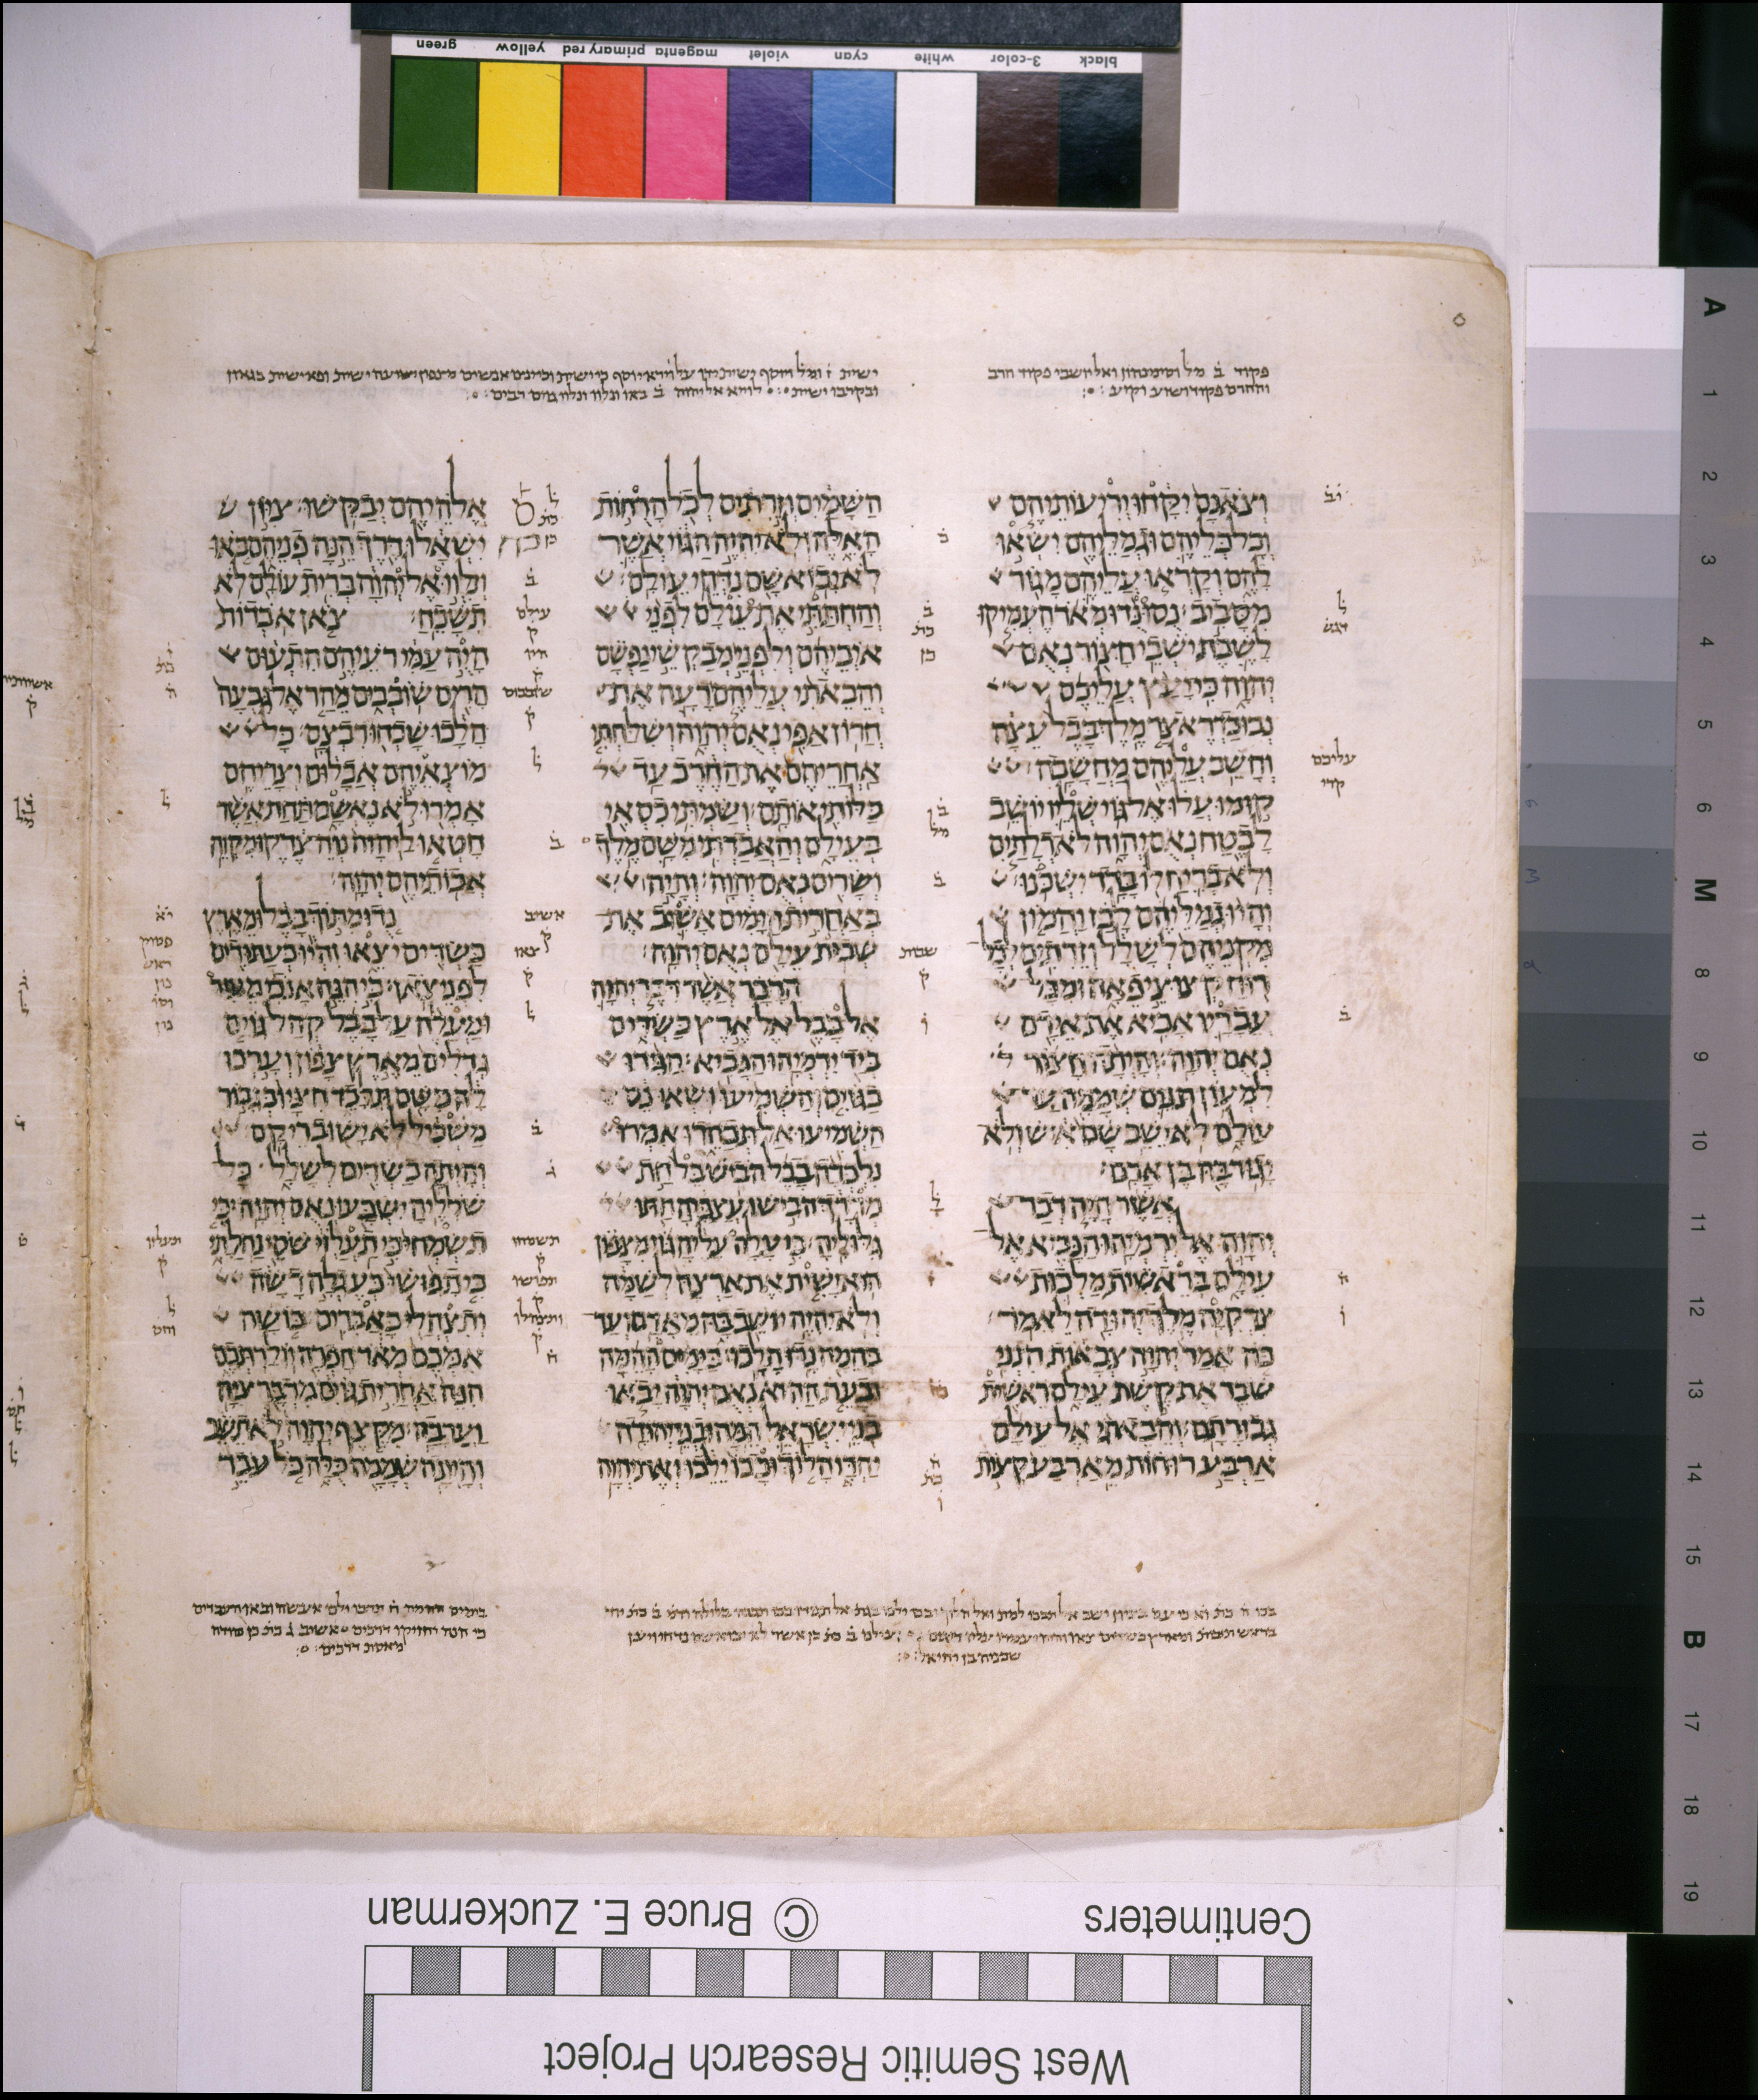 פקוד ב מל וסימנהון ואל יושבי פקוד חרב
והחרם פקוד ושוע וקוע
וצאנם יקחו יריעותיהם
וכל כליהם וגמליהם ישאו
להם וקראו עליהם מגור
מסביב נסו נדו מאד העמיקו
לשבת ישבי חצור נאם
יהוה כי יעץ עליכם
נבוכדראצר מלך בבל עצה
וחשב עליהם מחשבה
קומו עלו אל גוי שליו יושב
לבטח נאם יהוה לא דלתים
ולא בריח לו בדד ישכנו
והיו גמליהם לבז והמון
מקניהם לשלל וזרתים לכל
רוח קצוצי פאה ומכל
עבריו אביא את אידם
נאם יהוה והיתה חצור
למעון תנים שממה עד
עולם לא ישב שם איש ולא
יגור בה בן אדם
אשר היה דבר
יהוה אל ירמיהו הנביא אל
עילם בראשית מלכות
צדקיה מלך יהודה לאמר
כה אמר יהוה צבאות הנני
שבר את קשת עילם ראשית
גבורתם והבאתי אל עילם
ארבע רוחות מארבע קצות
השמים וזרתים לכל הרחות
האלה ולא יהיה הגוי אשר
לא יבוא שם נדחי עולם
והחתתי את עילם לפני
איביהם ולפני מבקשי נפשם
והבאתי עליהם רעה את
חרון אפי נאם יהוה ושלחתי
אחריהם את החרב עד
כלותי אותם ושמתי כסאי
בעילם והאבדתי משם מלך
ושרים נאם יהוה והיה
באחרית הימים אשוב את
שבית עילם נאם יהוה
הדבר אשר דבר יהוה
אל בבל אל ארץ כשדים
ביד ירמיהו הנביא הגידו
בגוים והשמיעו ושאו נס
השמיעו אל תכחדו אמרו
נלכדה בבל הביש בל חת
מרדך הבישו עצביה חתו
גלוליה כי עלה עליה גוי מצפון
הוא ישית את ארצה לשמה
ולא יהיה יושב בה מאדם ועד
בהמה נדו הלכו בימים ההמה
ובעת ההיא נאם יהוה יבאו
בני ישראל המה ובני יהודה
יחדו הלוך ובכו ילכו ואת יהוה
אלהיהם יבקשו ציון
ישאלו דרך הנה פניהם באו
ונלוו אל יהוה ברית עולם לא
תשכח צאן אבדות
היה עמי רעיהם התעום
הרים שובבים מהר אל גבעה
הלכו שכחו רבצם כל
מוצאיהם אכלום וצריהם
אמרו לא נאשם תחת אשר
חטאו ליהוה נוה צדק ומקוה
אבותיהם יהוה
נדו מתוך בבל ומארץ
כשדים יצאו והיו כעתודים
לפני צאן כי הנה אנכי מעיר
ומעלה על בבל קהל גוים
גדלים מארץ צפון וערכו
לה משם תלכד חציו כגבור
משכיל לא ישוב ריקם
והיתה כשדים לשלל כל
שלליה ישבעו נאם יהוה כי
תשמחי כי תעלזי שסי נחלתי
כי תפושי כעגלה דשה
ותצהלי כאברים בושה
אמכם מאד חפרה יולדתכם
הנה אחרית גוים מדבר ציה
וערבה מקצף יהוה לא תשב
והיתה שממה כלה כל עבר
green yellow primary red magenta violet cyan white 3-color black
A 1 2 3 4 5 6 M 8 9 10 11 12 13 14 15 B 17 18 19
Centimeters © Bruce E. Zuckerman
West Semitic Research Project